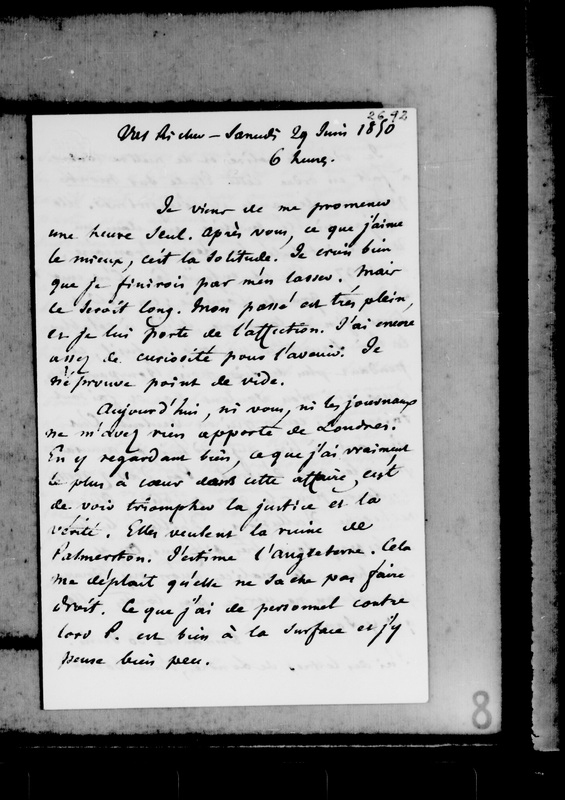 2672
Val Richer - Samedi 29 Juin 1850
6 heures.
Je viens de me promener
une heure seul. Après vous, ce que j'aime
le mieux, c'est la solitude. Je crois bien
que je finirois par m'en lasser. Mais
ce seroit long. Mon passé est très plein,
et je lui porte de l'affection. J'ai encore
assez de curiosité pour l'avenir. Je
n'éprouve point de vide.
Aujourd'hui, ni vous, ni les journaux
ne m'avez rien apporté de Londres.
En y regardant bien, ce que j'ai vraiment
le plus à cœur dans cette affaire, c'est
de voir triompher la justice et la
vérité. Elles veulent la ruine de
Palmerston. J'estime l'Angleterre. Cela
me déplait qu'elle ne sache pas faire
droit. Ce que j'ai de personnel contre
lord P. est bien à la surface et j'y
pense bien peu.
8